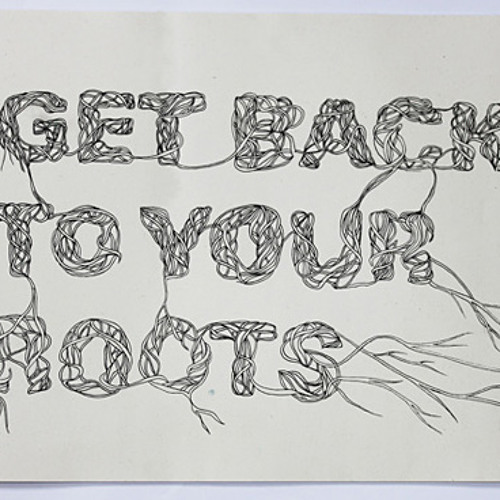 GET BACK
TO YOUR
ROOTS